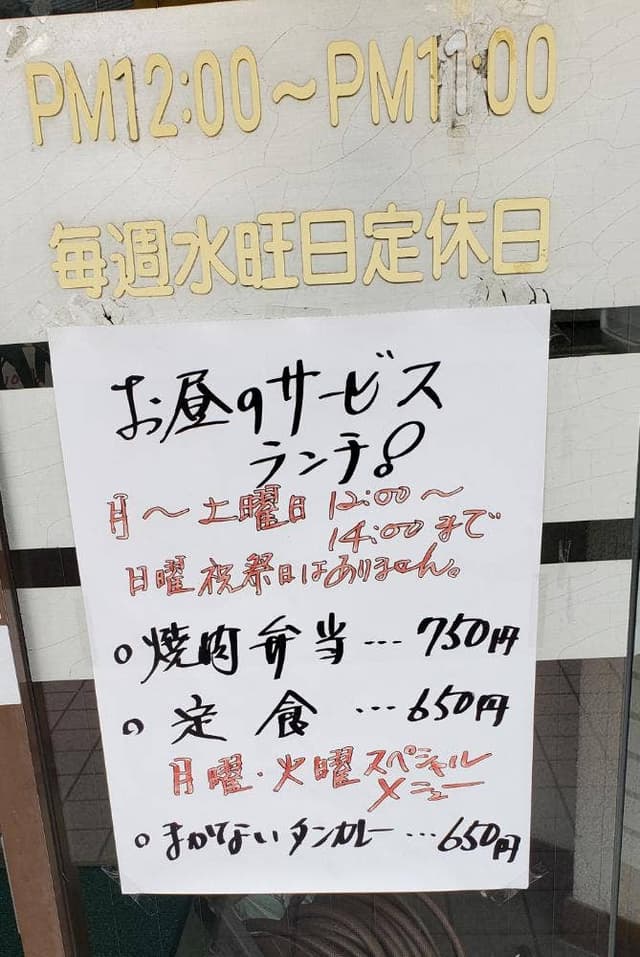 PM12:00～PM11:00
毎週水旺日定休日
お昼のサービス
ランチ！
月～土曜日 12:00～
14:00まで
日曜祝祭日はありません。
○焼肉弁当…750円
○定食…650円
月曜・火曜スペシャル
メニュー
○まかないタンカレー…650円